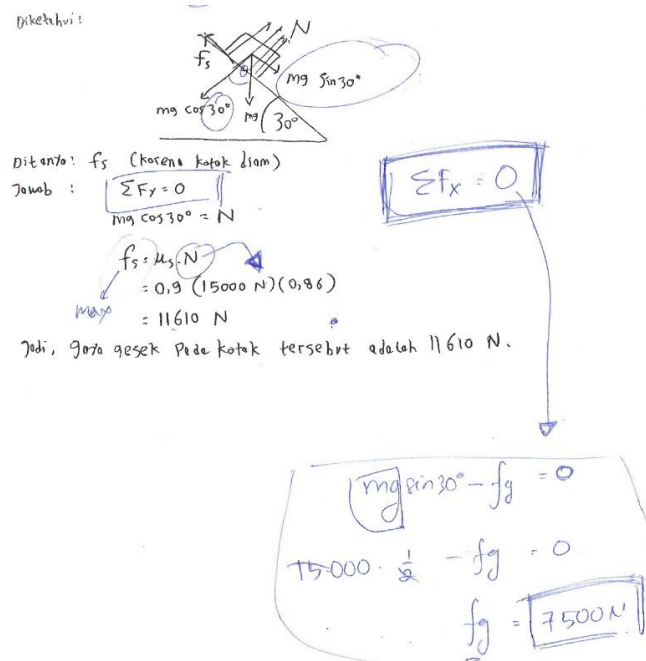 Diketahui:
N
fs
θ
mg sin 30°
mg cos 30°
mg
30°
Ditanya: fs (karena kotak diam)
Jawab : ΣFy = 0
mg cos 30° = N
fs = μs.N
= 0,9 (15000 N)(0,86)
max
= 11610 N
Jadi, gaya gesek pada kotak tersebut adalah 11610 N.
Σfx = 0
mg sin 30° - fg = 0
15.000 . 1/2 - fg = 0
fg = 7500 N